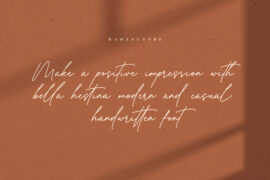 Make a positive impression with
bella hestina modern and casual
handwritten font